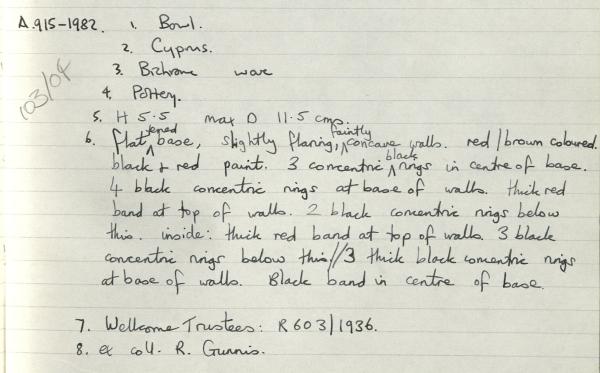 A.915-1982. 1. Bowl.
2. Cyprus.
3. Bichrome ware
103/04
4. Pottery.
5. H 5.5 max D 11.5 cms.
6. flattened base, slightly flaring, faintly concave walls. red/brown coloured.
black + red paint. 3 concentric black rings in centre of base.
4 black concentric rings at base of walls. thick red
band at top of walls. 2 black concentric rings below
this. inside: thick red band at top of walls. 3 black
concentric rings below this//3 thick black concentric rings
at base of walls. Black band in centre of base.
7. Wellcome Trustees: R603/1936.
8. ex coll. R. Gunnis.